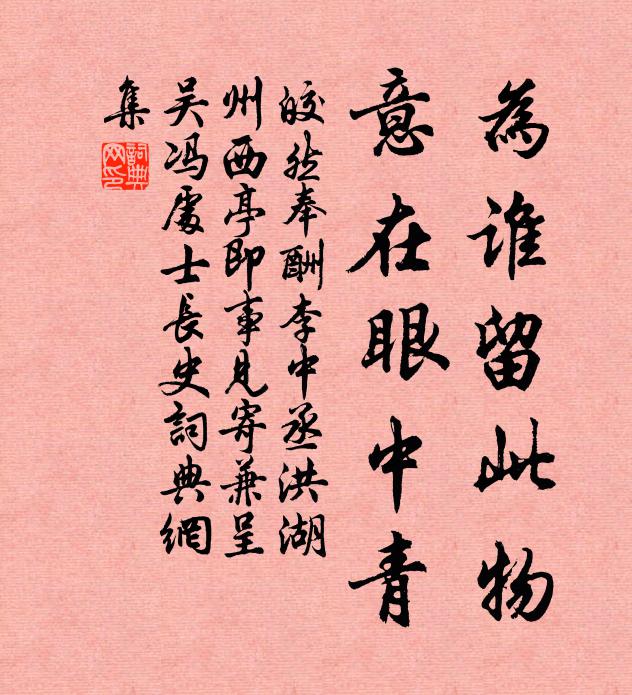 為誰留此物
意在眼中青
皎然奉酬李中丞洪湖
州西亭即事見寄兼呈
吴馮處士長史詞典網
集
詞典
网印